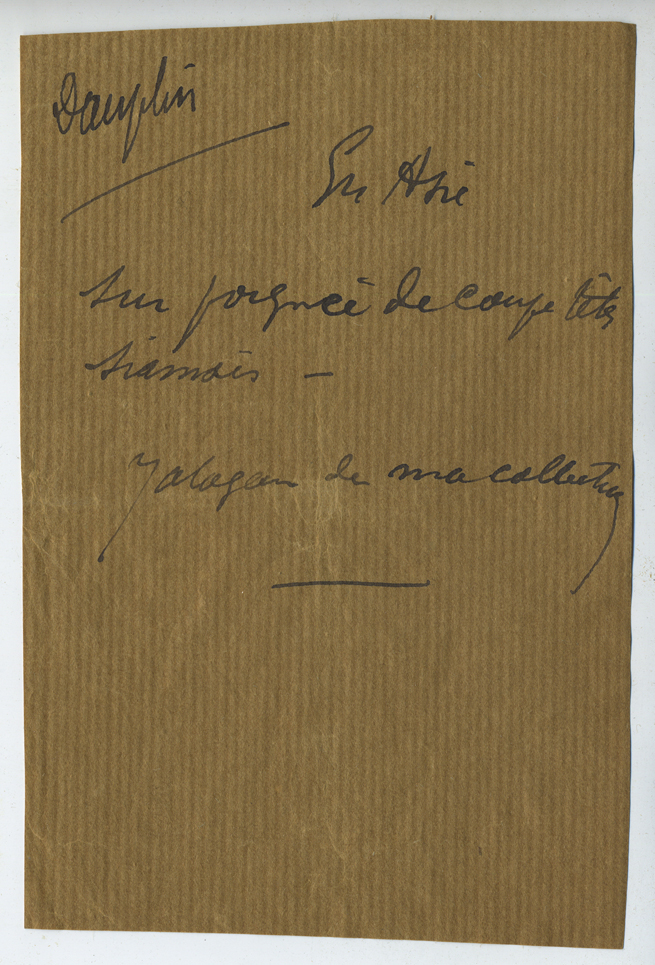 Dauphin
En Asie
sur poignée de coupe têtes
siamois —
Yatagan de ma collection